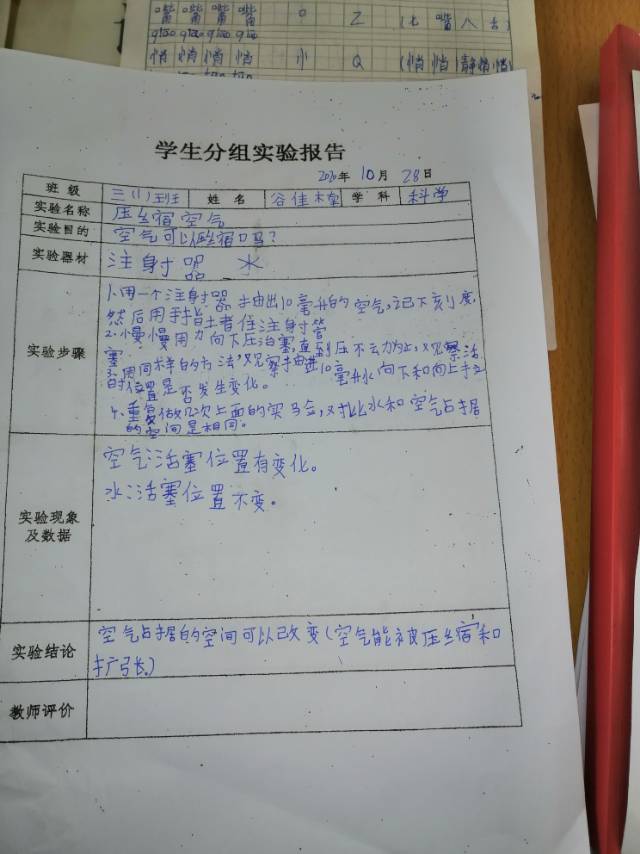 嘴 嘴 嘴 嘴 口 Z (七 嘴 八 舌)
悄 悄 悄 悄 忄 Q (悄 悄 静悄悄)
学生分组实验报告
2020年 10月 28日
班级 三(1)班 姓名 谷佳 学科 科学
实验名称 压缩空气
实验目的 空气可以压缩吗?
实验器材 注射器 水
实验步骤
1.用一个注射器抽出10毫升的空气,记下刻度,
然后用手指堵住注射管
2.慢慢用力向下压活塞,直到压不动为止,观察活
塞
3.用同样的方法,观察抽进10毫升水向下和向上拉
时位置是否发生变化。
4.重复做几次上面的实验,对比水和空气占据
的空间是相同。
实验现象
及数据
空气:活塞位置有变化。
水:活塞位置不变。
实验结论
空气占据的空间可以改变(空气能被压缩和
扩张)
教师评价